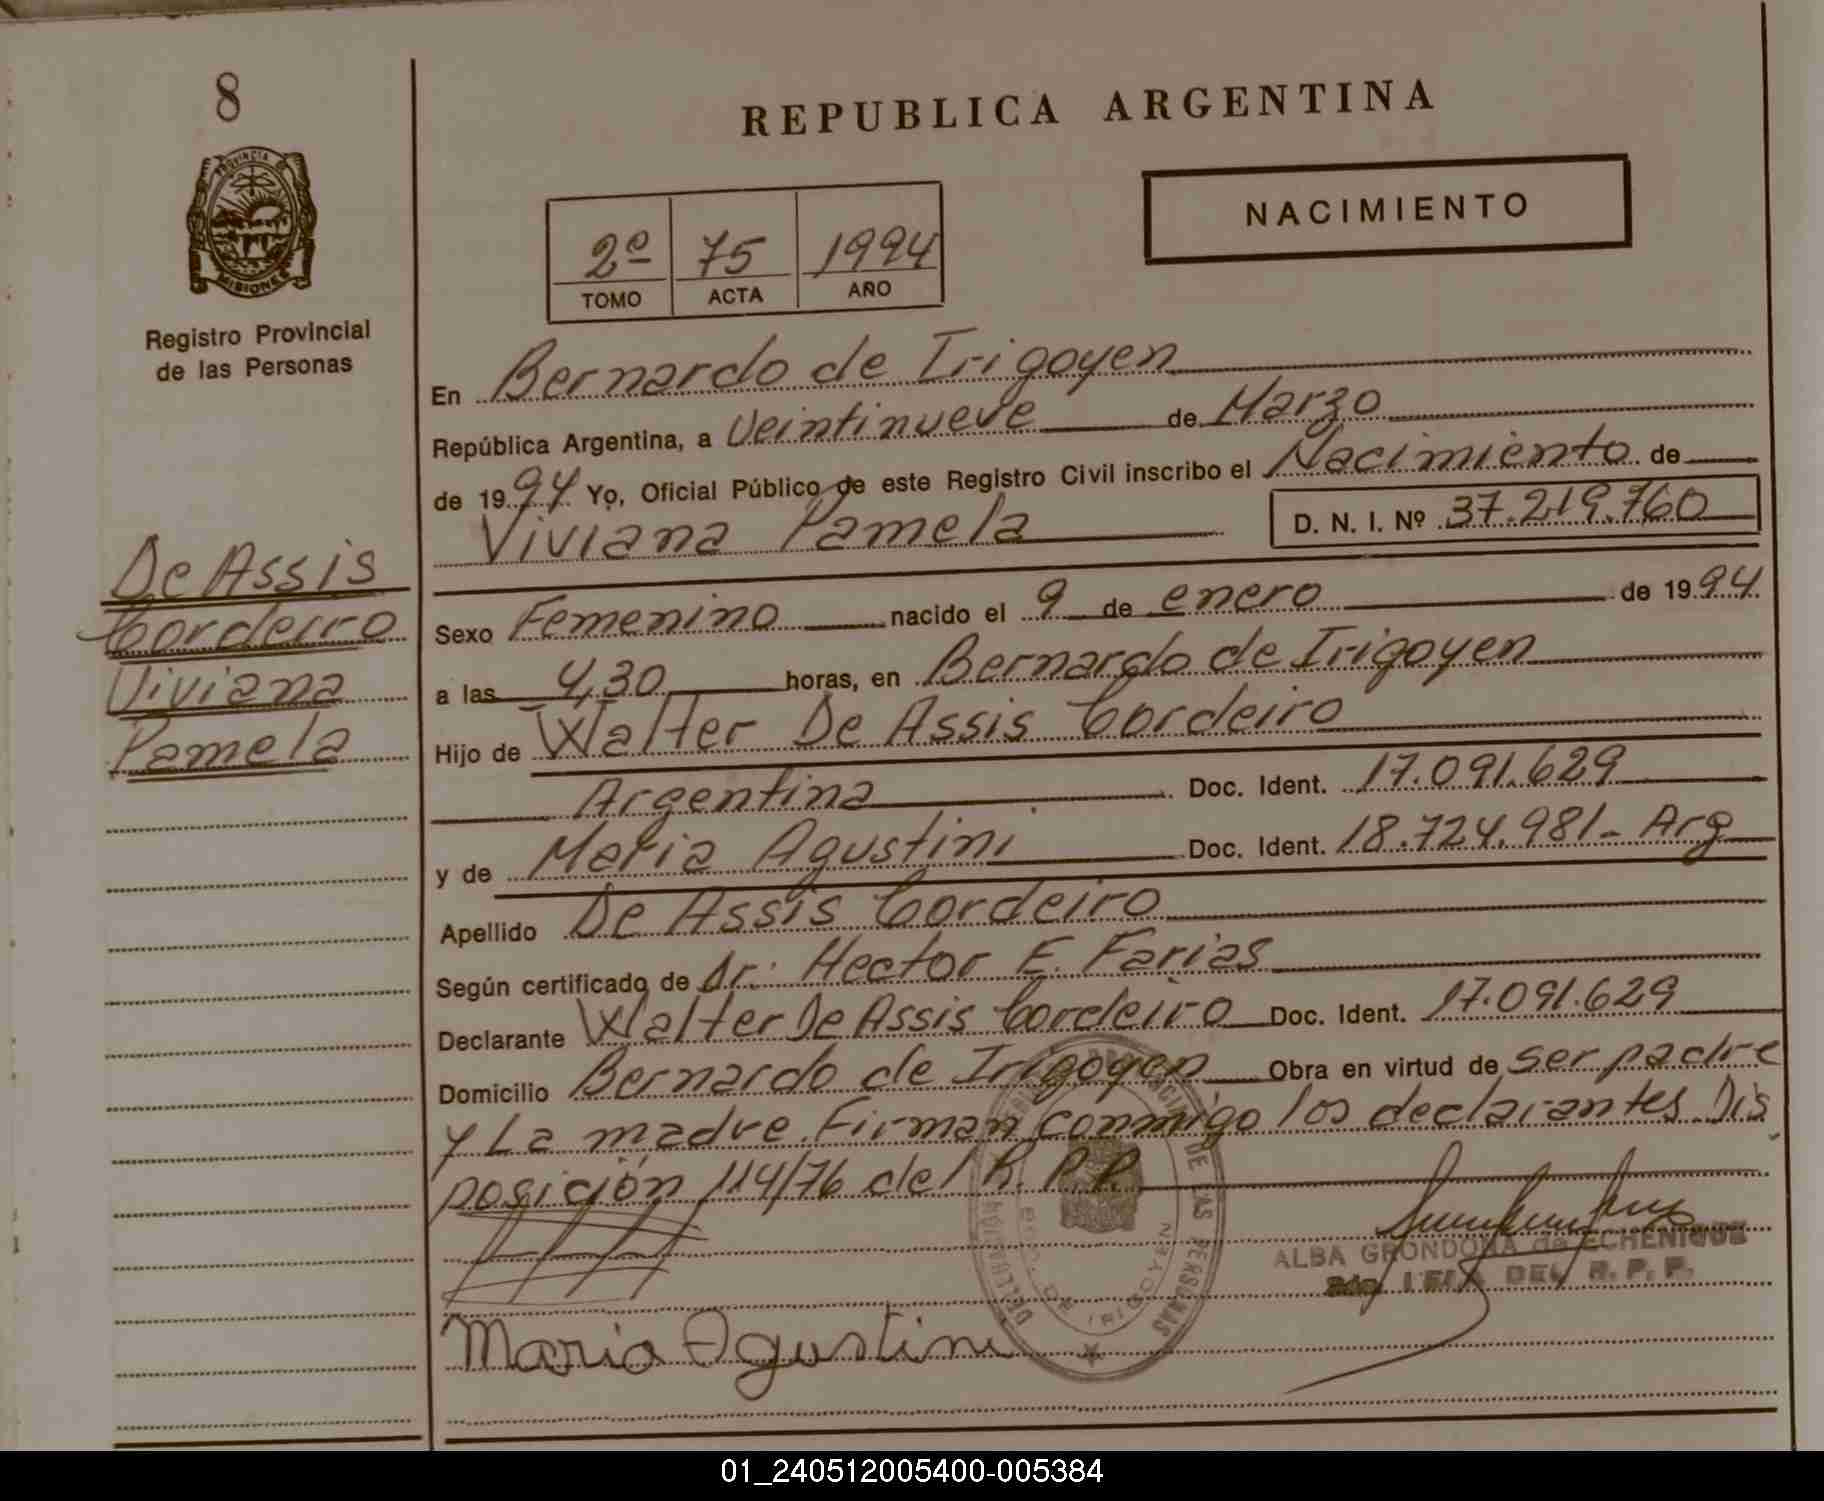 8
REPUBLICA ARGENTINA
PROVINCIA DE
MISIONES
NACIMIENTO
2º 75 1994
TOMO ACTA AÑO
Registro Provincial
de las Personas
En Bernardo de Irigoyen
República Argentina, a Veintinueve de Marzo
de 1994 Yo, Oficial Público de este Registro Civil inscribo el Nacimiento de
Viviana Pamela D. N. I. Nº 37.219.760
De Assis
Cordeiro
Viviana
Pamela
Sexo Femenino nacido el 9 de enero de 1994
a las 4,30 horas, en Bernardo de Irigoyen
Hijo de Walter De Assis Cordeiro
Argentina Doc. Ident. 17.091.629
y de Maria Agustini Doc. Ident. 18.724.981- Arg
Apellido De Assis Cordeiro
Según certificado de Dr: Hector E. Farias
Declarante Walter De Assis Cordeiro Doc. Ident. 17.091.629
Domicilio Bernardo de Irigoyen Obra en virtud de ser padre
y La madre. Firman conmigo los declarantes Dis
posición 114/76 del R.P.P.
DE LAS PERSONAS
DE IRIGOYEN
ALBA GRONDONA de ECHENIQUE
DEL R. P. P.
Maria Agustini
01_240512005400-005384